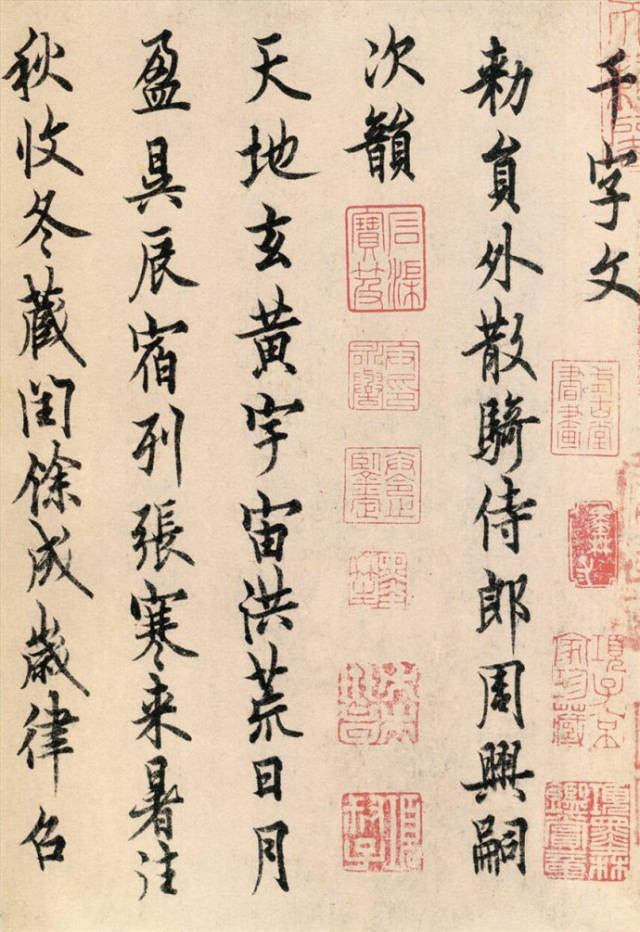 千字文
勑員外散騎侍郎周興嗣
次韻
天地玄黃宇宙洪荒日月
盈昃辰宿列張寒来暑往
秋收冬藏閏餘成歲律吕